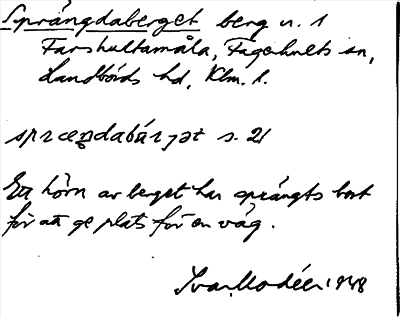 Sprängdaberget berg n. 1
Farshultamåla, Fagerhults sn,
Handbörds hd, Klm. l.
spræŋdabärjət s. 21
Ett hörn av berget har sprängts bort
för att ge plats för en väg.
Ivar Modéer 1948